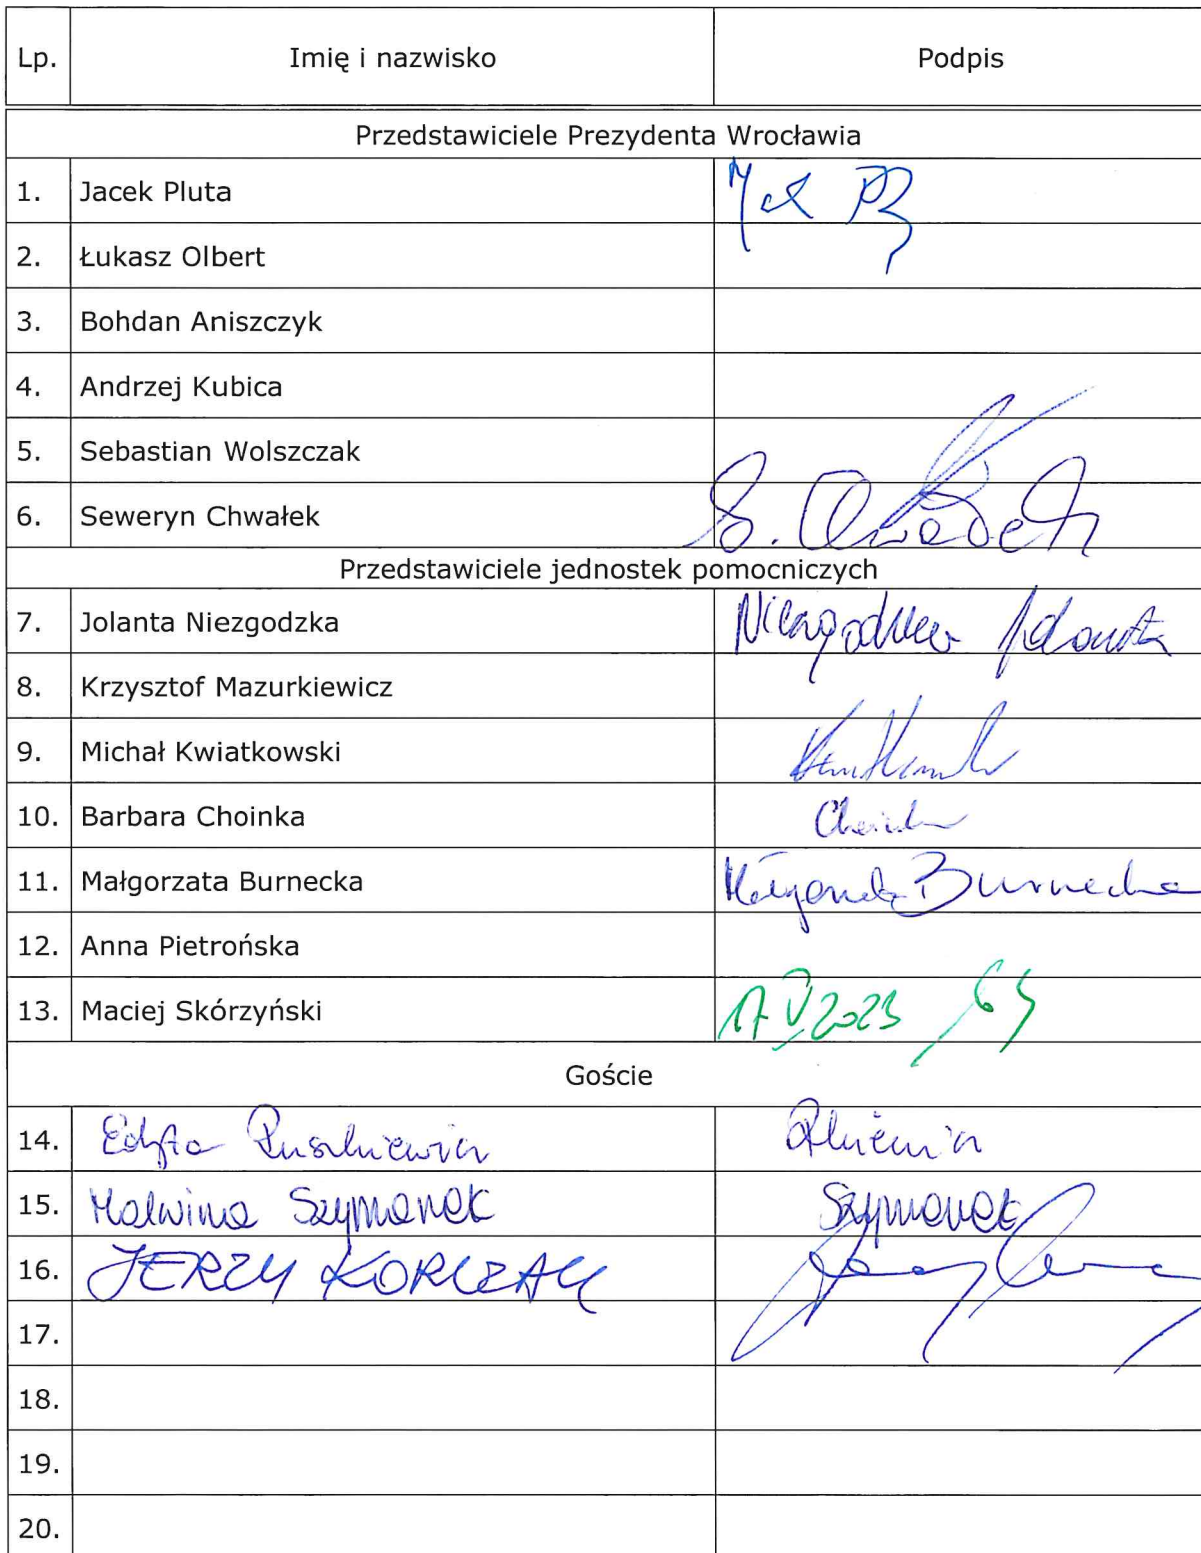 Lp. Imię i nazwisko Podpis
Przedstawiciele Prezydenta Wrocławia
1. Jacek Pluta
2. Łukasz Olbert
3. Bohdan Aniszczyk
4. Andrzej Kubica
5. Sebastian Wolszczak
6. Seweryn Chwałek S. Chwałek
Przedstawiciele jednostek pomocniczych
7. Jolanta Niezgodzka Niezgodzka Jolanta
8. Krzysztof Mazurkiewicz
9. Michał Kwiatkowski
10. Barbara Choinka Choinka
11. Małgorzata Burnecka Małgorzata Burnecka
12. Anna Pietrońska
13. Maciej Skórzyński 17 V 2023
Goście
14. Edyta
15. Malwina Szymanek Szymanek
16. JERZY KORCZAK
17.
18.
19.
20.